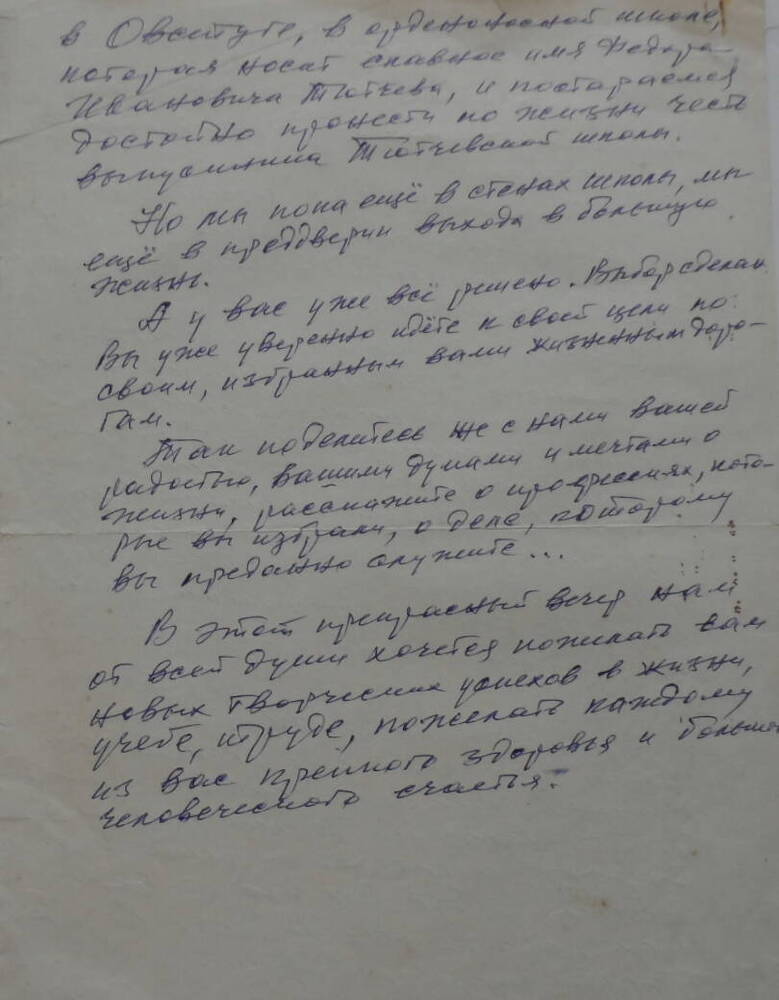 в Овстуге, в орденоносной школе,
которая носит славное имя Федора
Ивановича Тютчева, и постараемся
достойно пронести по жизни честь
выпускника Тютчевской школы.
Но мы пока ещё в стенах школы, мы
ещё в преддверии выхода в большую
жизнь.
А у вас уже всё решено. Выбор сделан.
Вы уже уверенно идёте к своей цели по
своим, избранным вами жизненным доро-
гам.
Так поделитесь же с нами вашей
радостью, вашими думами и мечтами о
жизни, расскажите о профессиях, кото-
рые вы избрали, о деле, которому
вы преданно служите...
В этот прекрасный вечер нам
от всей души хочется пожелать вам
новых творческих успехов в жизни,
учебе, труде, пожелать каждому
из вас крепкого здоровья и большого
человеческого счастья.